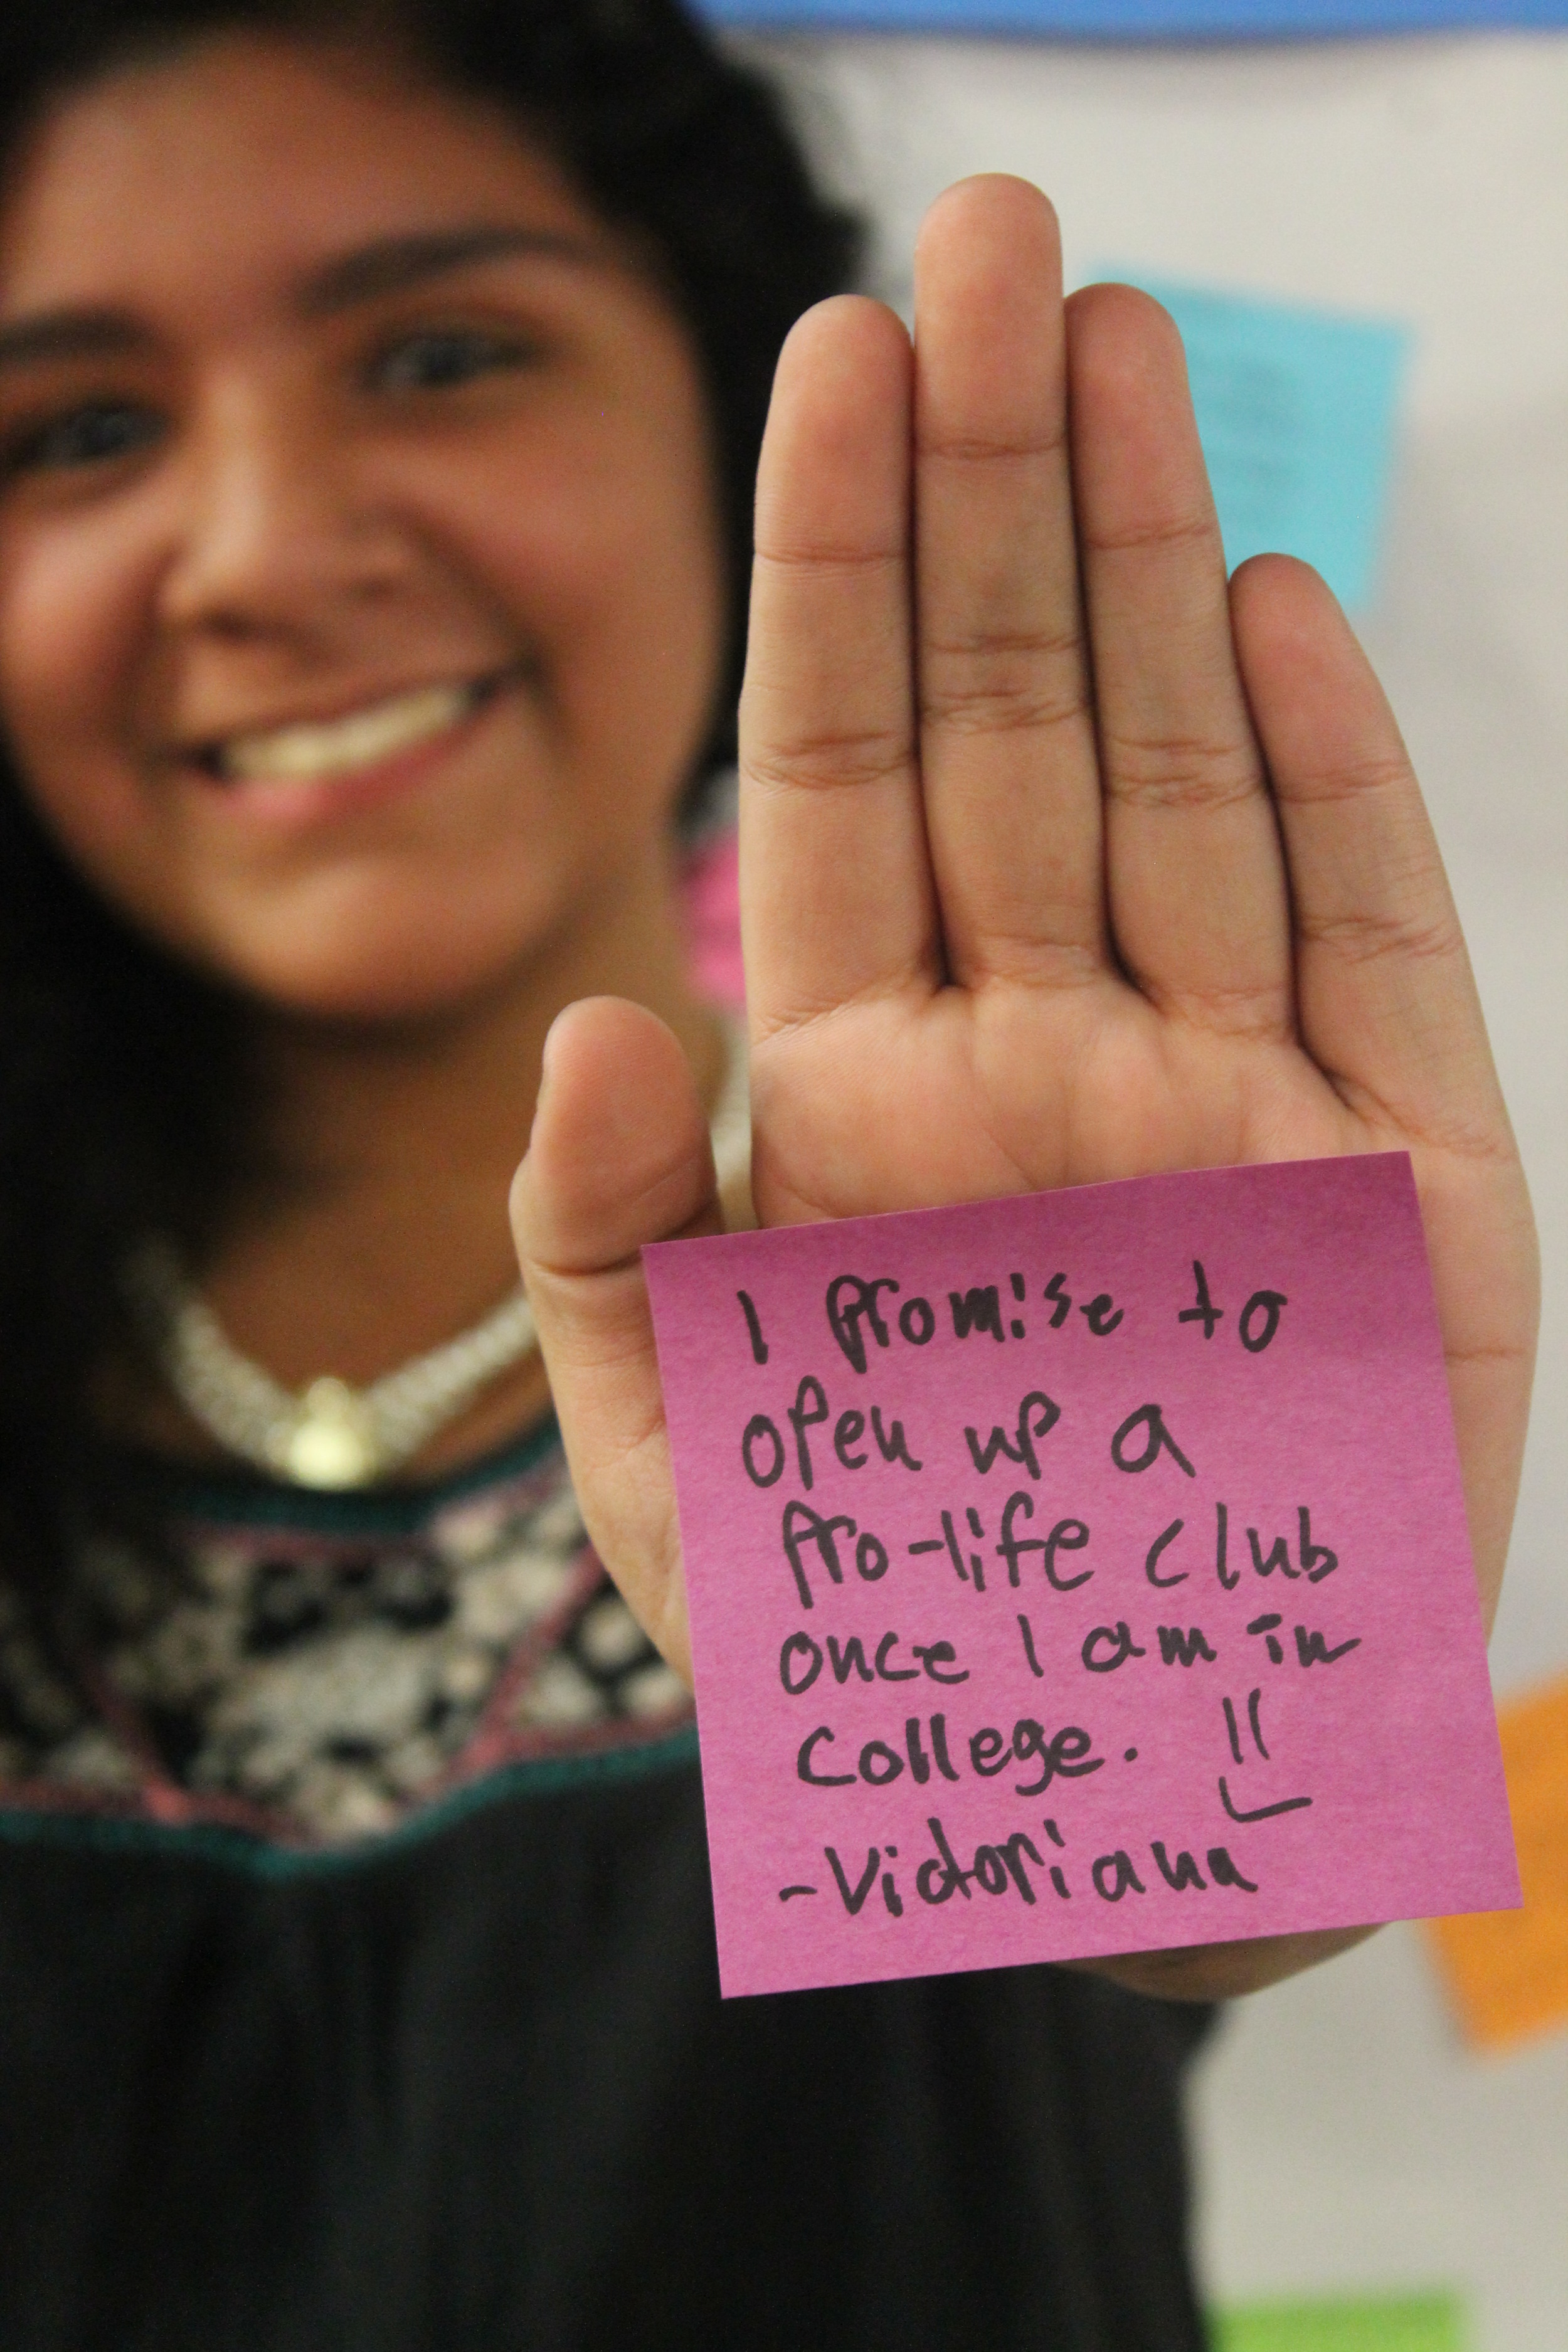 I promise to
open up a
pro-life club
once I am in
college.
-Victoriana